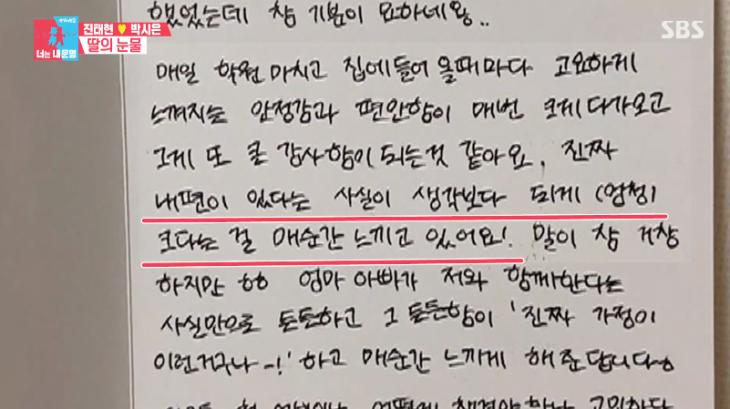 했었는데 참 기분이 묘하네용..
SBS
동상이몽2
너는 내 운명
진태현 박시은
딸의 눈물
매일 학원 마치고 집에 들어 올때마다 고요하게
느껴지는 안정감과 편안함이 매번 크게 다가오고
그게 또 큰 감사함이 되는것 같아요. 진짜
내편이 있다는 사실이 생각보다 되게 (엄청)
크다는 걸 매순간 느끼고 있어요! 말이 참 거창
하지만 ㅎㅎ 엄마 아빠가 저와 함께한다는
사실만으로 든든하고 그 든든함이 '진짜 가정이
이런거구나-!' 하고 매순간 느끼게 해준답니다